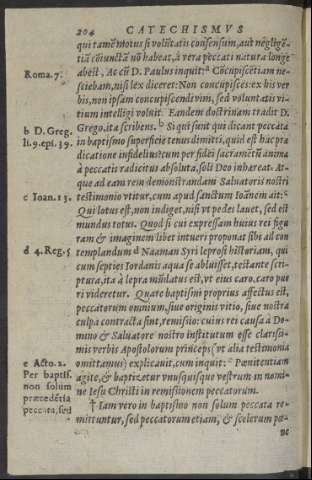 204 CATECHISMVS
qui tamē motus si volūtatis consensum, aut negligē-
tiā coiunctā nō habeat, à vera peccati natura longè
Roma. 7. abest. Ac cū D. Paulus inquit: a Cōcupiscētiam ne-
sciebam, nisi lex diceret: Non concupisces: ex his ver
bis, non ipsam concupiscendi vim, sed voluntatis vi-
tium intelligi voluit. Eandem doctrinam tradit D.
b D. Greg. Grego. ita scribens. b Si qui sunt qui dicant peccata
li. 9. epi. 39. in baptismo superficie tenus dimitti, quid est hac præ
dicatione infidelius? cum per fidei sacramētū anima
à peccatis radicitus absoluta, soli Deo inhæreat. At-
que ad eam rem demonstrandam Saluatoris nostri
c Ioan. 13. testimonio vtitur, cum apud sanctum Ioānem ait: c
Qui lotus est, non indiget, nisi vt pedes lauet, sed est
mundus totus. Quod si cui expressam huius rei figu
ram & imaginem libet intueri proponat sibi ad con
d 4. Reg. 5 templandum d Naaman Syri leprosi historiam, qui
cum septies Iordanis aqua se abluisset, testante scri-
ptura, ita à lepra mūdatus est, vt eius caro, caro pue
ri videretur. Quare baptismi proprius affectus est,
peccatorum omnium, siue originis vitio, siue nostra
culpa contracta sint, remissio: cuius rei causa à Do-
mino & Saluatore nostro institutum esse clarissi-
mis verbis Apostolorum princeps (vt alia testimonia
e Acto. 2. omittamus) explicauit, cum inquit: e Pœnitentiam
Per baptis. agite, & baptizetur vnusquisque vestrum in nomi-
non solum ne Iesu Christi in remissionem peccatorum.
præcedētia † Iam vero in baptismo non solum peccata re-
peccata, sed mittuntur, sed peccatorum etiam, & scelerum pœ-
næ